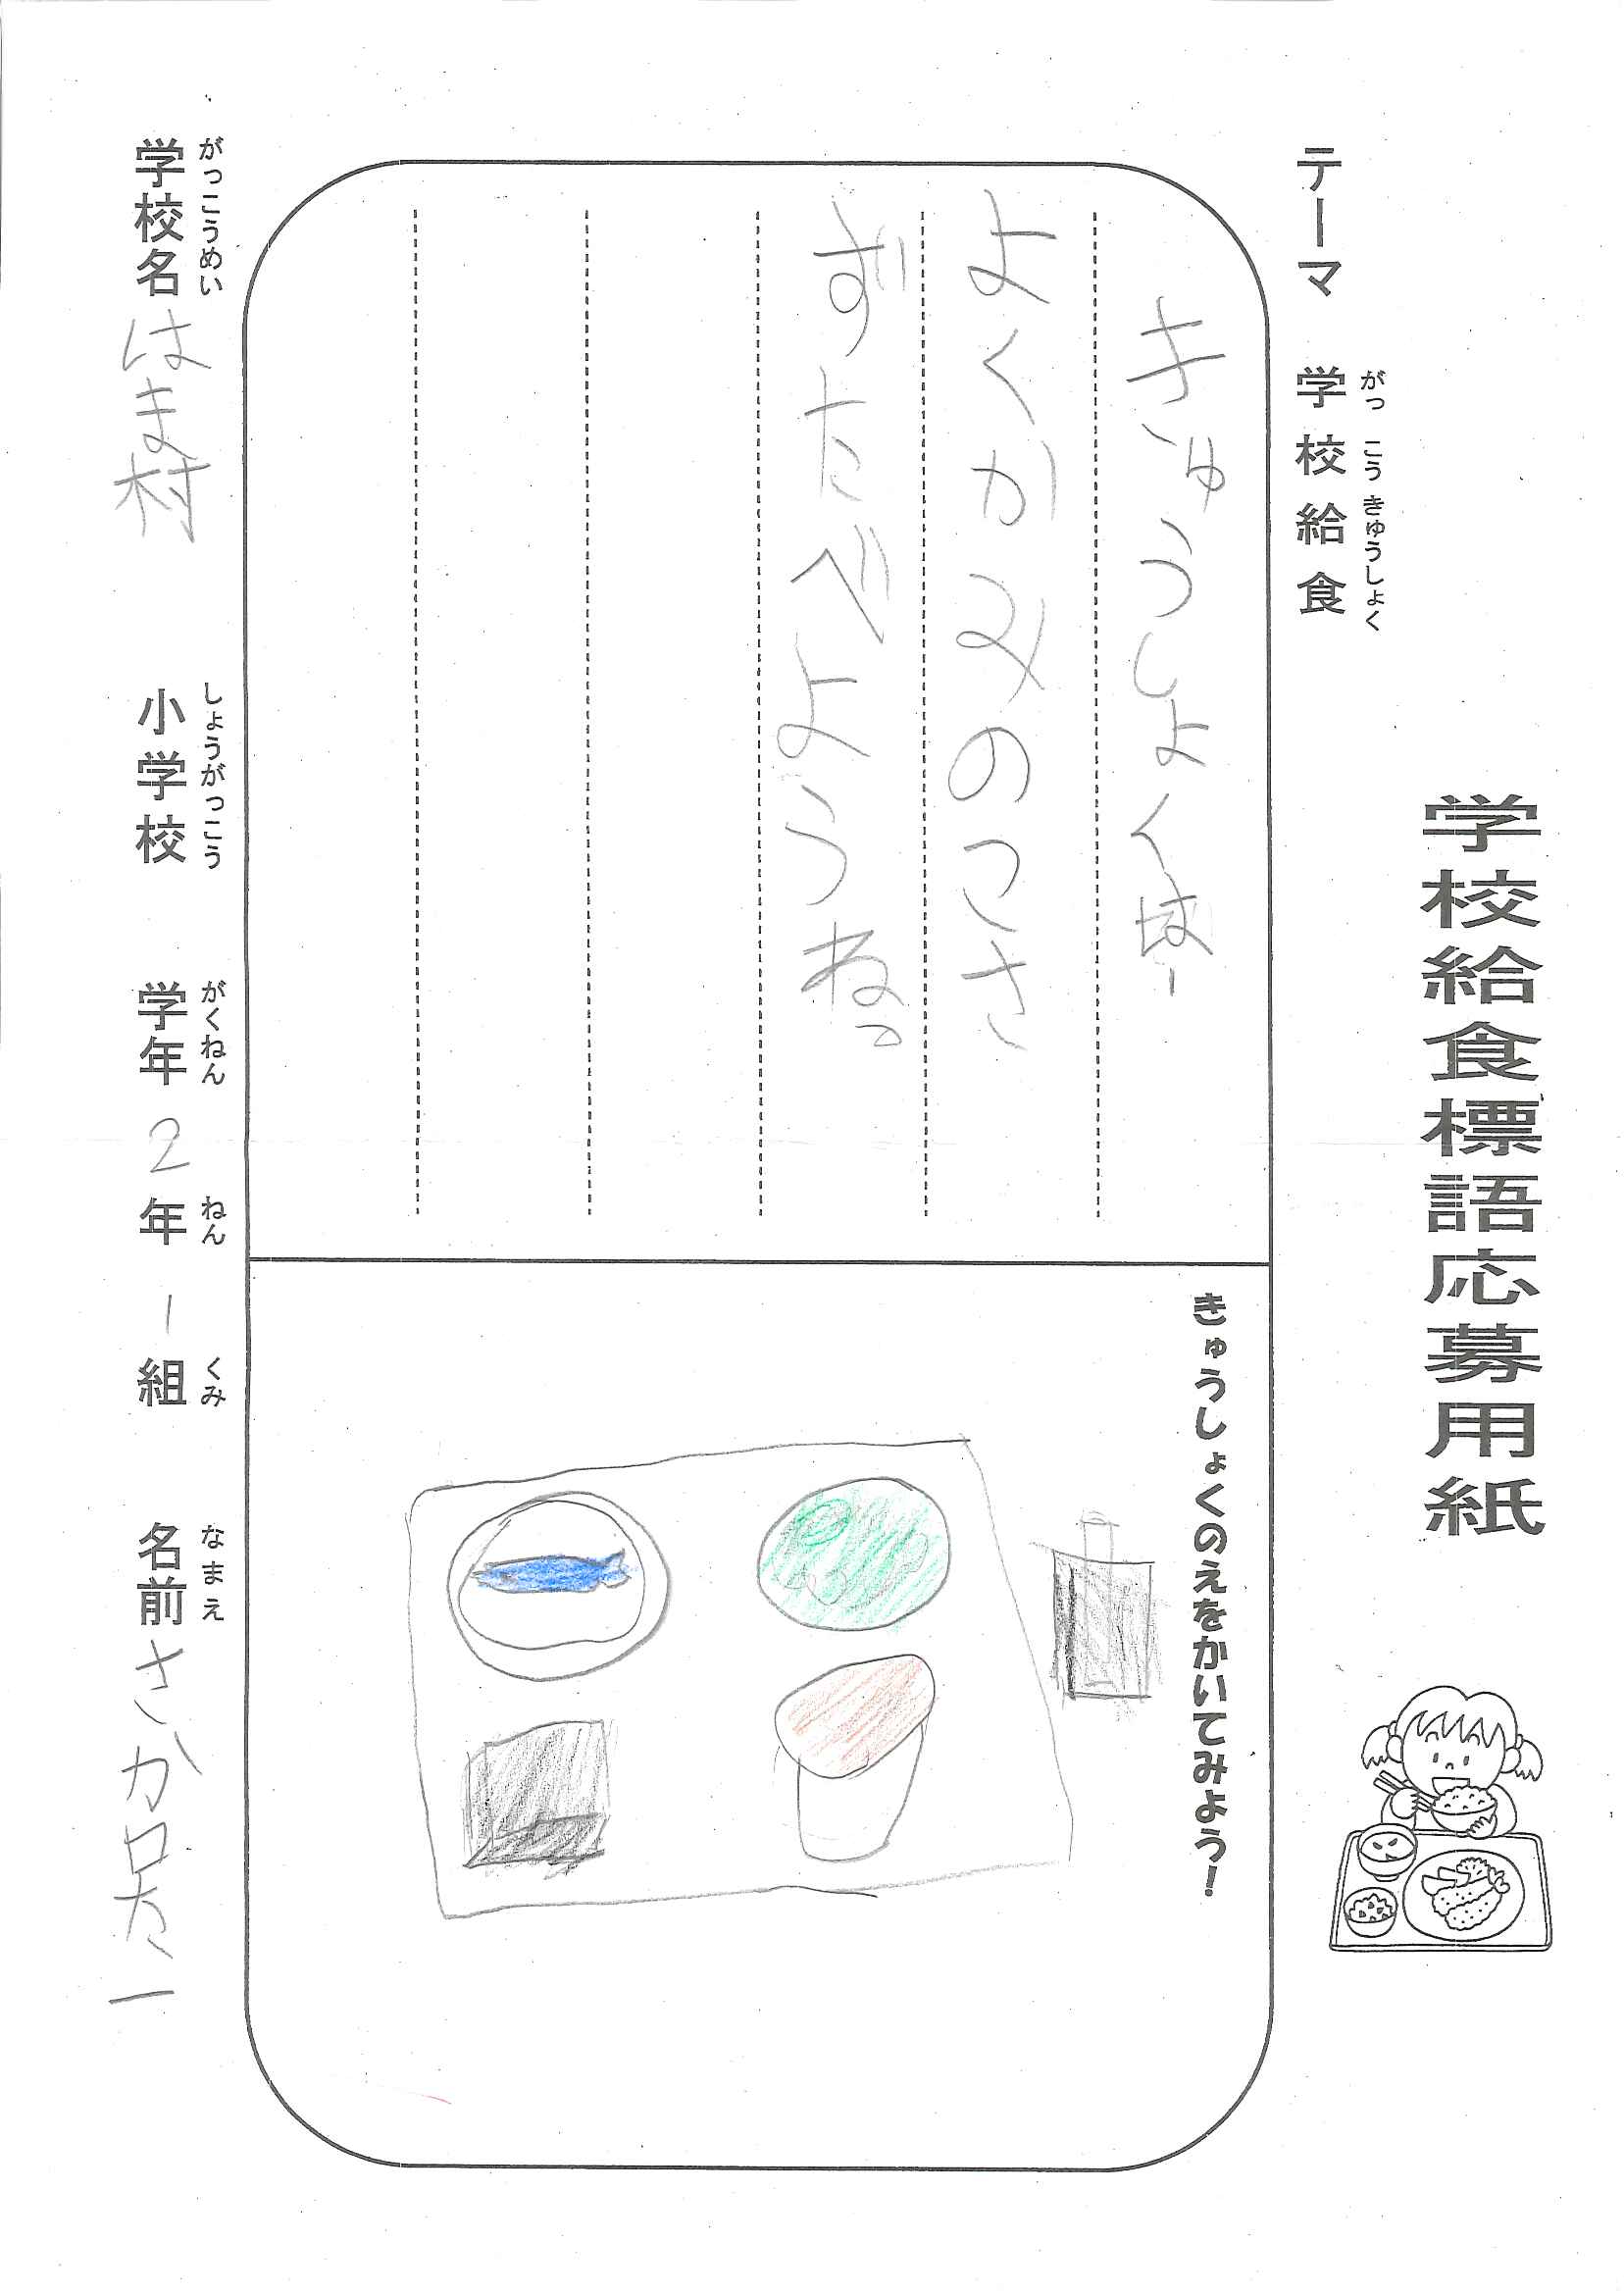 学校給食標語応募用紙
テーマ　学校給食
がっこうきゅうしょく
きゅうしょくはー
よくかみのこさ
ずたべようねっ
きゅうしょくのえをかいてみよう！
がっこうめい　しょうがっこう　がくねん　ねん　くみ　なまえ
学校名 はま村　小学校　学年 2 年 1 組　名前 さか口太一